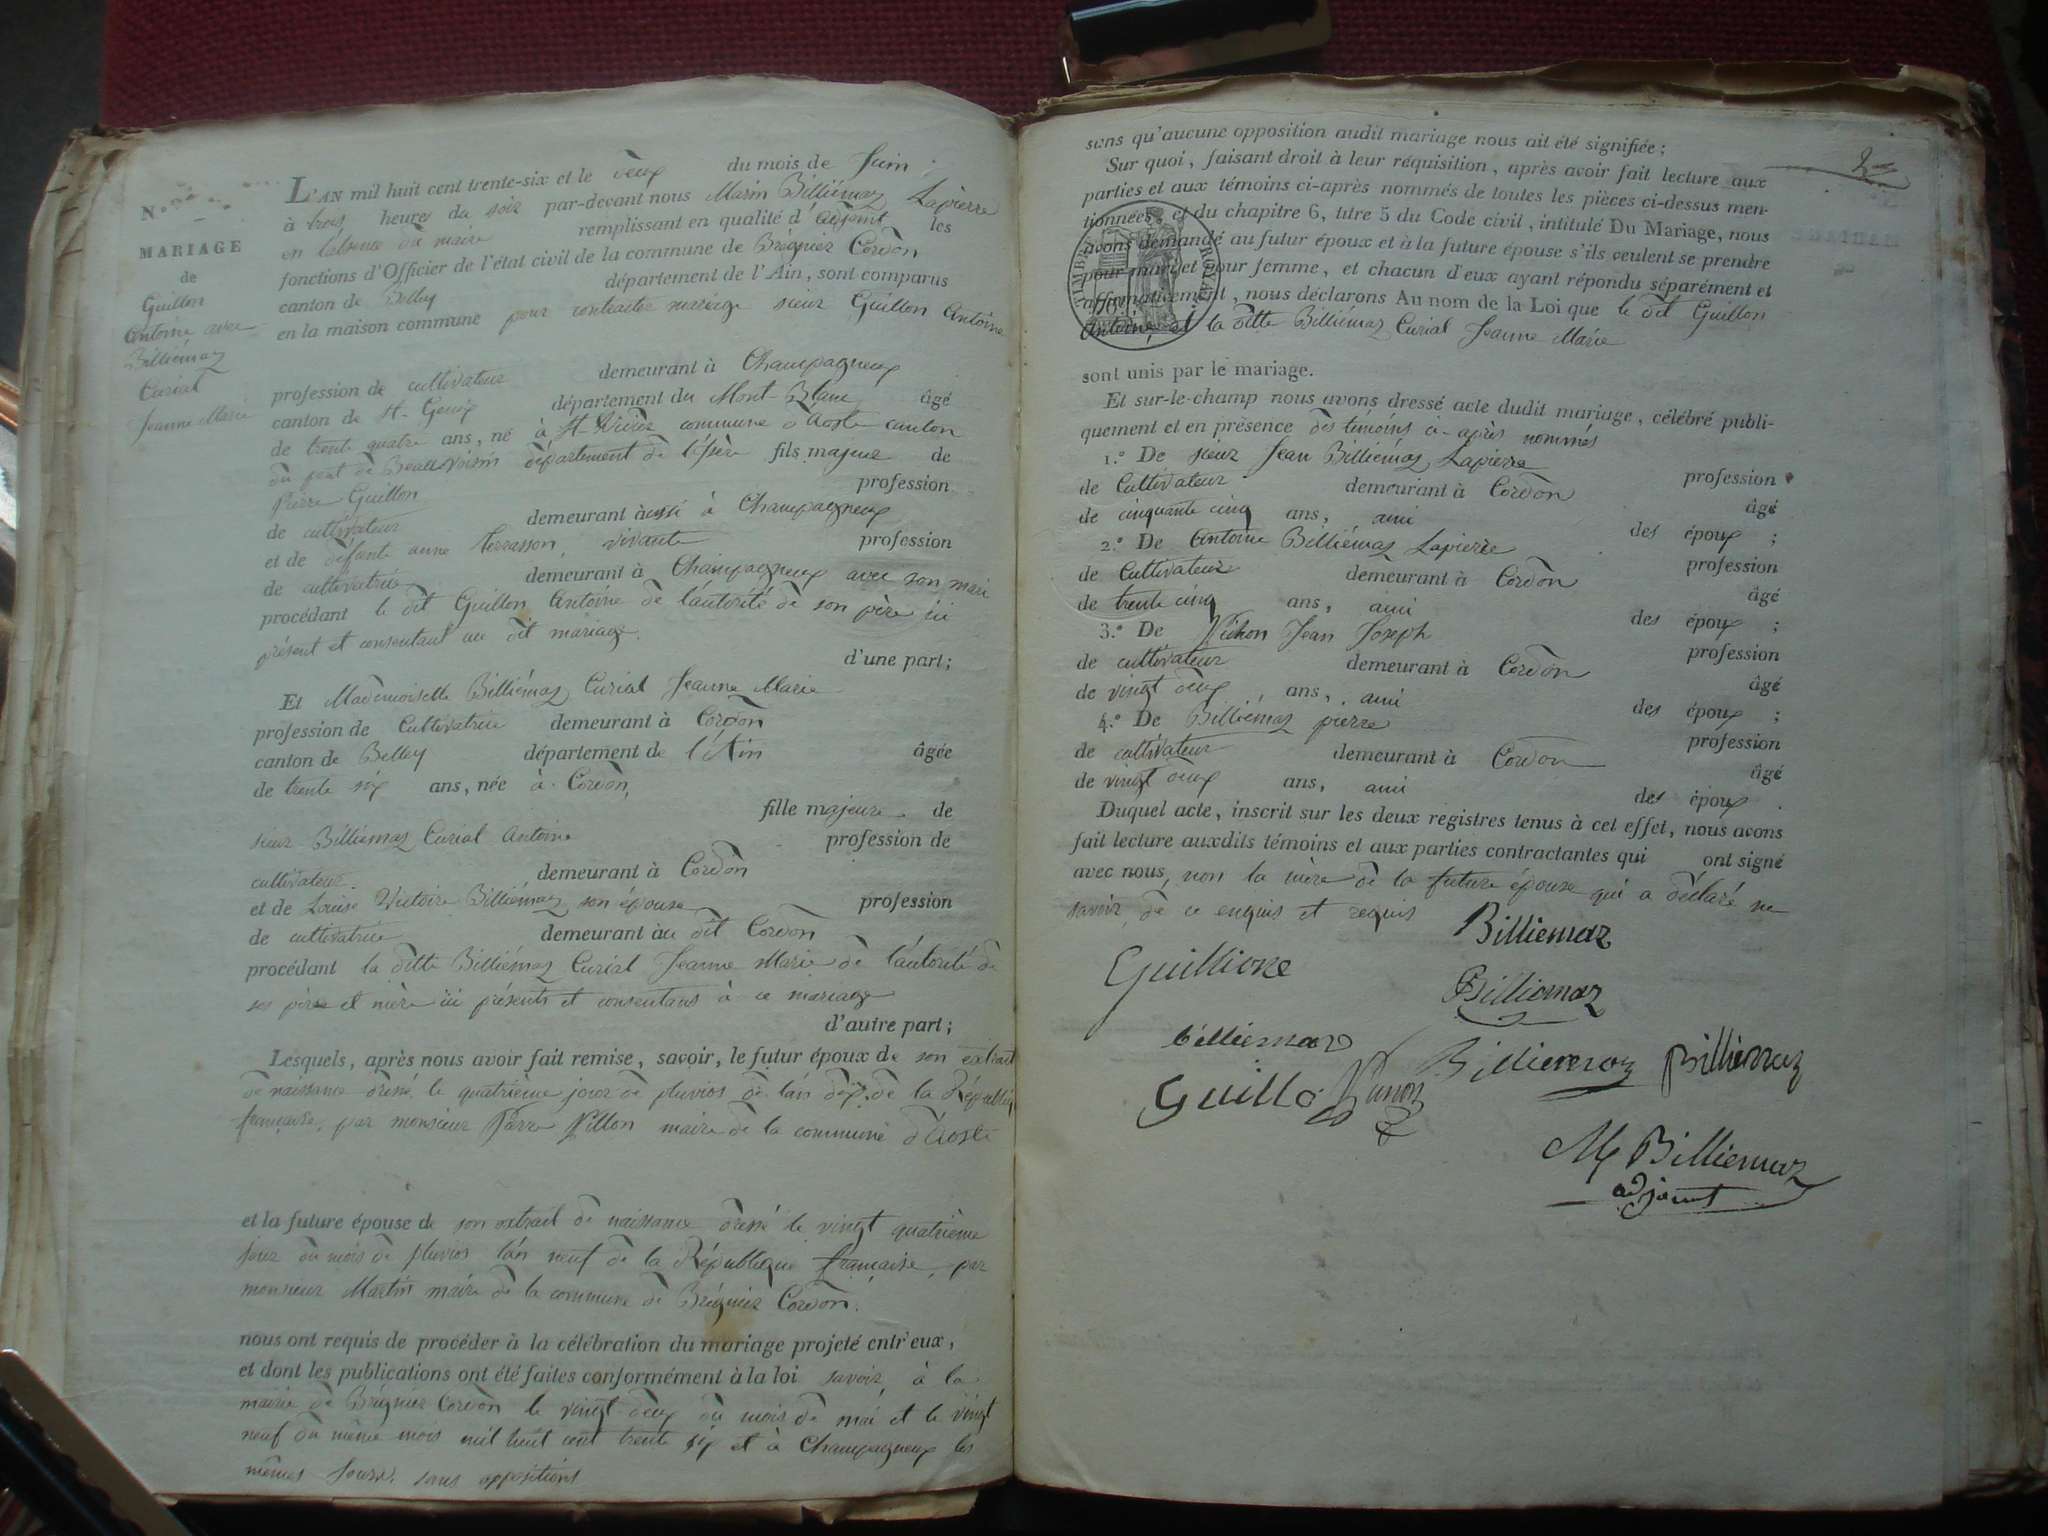 N.o
MARIAGE
de
Guillon
Antoine avec
Billiémaz
Curial
Jeanne Marie
L'AN mil huit cent trente-six et le deux du mois de Juin
à trois heures du soir par-devant nous Marin Billiémaz Lapierre
en l'absence du maire remplissant en qualité d'adjoint les
fonctions d'Officier de l'état civil de la commune de Brégnier Cordon
canton de Belley département de l'Ain, sont comparus
en la maison commune pour contracter mariage sieur Guillon Antoine
profession de cultivateur demeurant à Champagneux
canton de St-Genix département du Mont-Blanc âgé
de trente quatre ans, né à St-Didier commune d'Aoste canton
du pont de Beauvoisin département de l'Isère fils majeur de
Pierre Guillon profession
de cultivateur demeurant aussi à Champagneux
et de défunte anne Terrasson, vivante profession
de cultivatrice demeurant à Champagneux avec son mari
procédant le dit Guillon Antoine de l'autorité de son père ici
présent et consentant au dit mariage.
d'une part;
Et Mademoiselle Billiémaz Curial Jeanne Marie
profession de Cultivatrice demeurant à Cordon
canton de Belley département de l'Ain âgée
de trente six ans, née à Cordon,
fille majeure de
sieur Billiémaz Curial Antoine profession de
cultivateur demeurant à Cordon
et de Louise Victoire Billiémaz son épouse profession
de cultivatrice demeurant au dit Cordon
procédant la ditte Billiémaz Curial Jeanne Marie de l'autorité de
ses père et mère ici présents et consentans à ce mariage
d'autre part;
Lesquels, après nous avoir fait remise, savoir, le futur époux de son extrait
de naissance dressé le quatrième jour de pluvios de l'an dix de la République
française, par monsieur Pierre maire de la commune d'Aoste
et la future épouse de son extrait de naissance dressé le vingt quatrième
jour du mois de pluvios l'an neuf de la République française, par
monsieur Martin maire de la commune de Brégnier Cordon.
nous ont requis de procéder à la célébration du mariage projeté entr'eux,
et dont les publications ont été faites conformément à la loi savoir à la
mairie de Brégnier Cordon le vingt deux du mois de mai et le vingt
neuf du même mois mil huit cent trente six et à Champagneux les
mêmes jours. sans oppositions
2
sans qu'aucune opposition audit mariage nous ait été signifiée;
Sur quoi, faisant droit à leur réquisition, après avoir fait lecture aux
parties et aux témoins ci-après nommés de toutes les pièces ci-dessus men-
tionnées, et du chapitre 6, titre 5 du Code civil, intitulé Du Mariage, nous
avons demandé au futur époux et à la future épouse s'ils veulent se prendre
pour mari et pour femme, et chacun d'eux ayant répondu séparément et
affirmativement, nous déclarons Au nom de la Loi que le dit Guillon
Antoine et la ditte Billiémaz Curial Jeanne Marie
TIMBRE ROYAL
sont unis par le mariage.
Et sur-le-champ nous avons dressé acte dudit mariage, célébré publi-
quement et en présence des témoins ci-après nommés
1.o De sieur Jean Billiémaz Lapierre profession
de Cultivateur demeurant à Cordon âgé
de cinquante cinq ans, ami des époux;
2.o De Antoine Billiémaz Lapierre profession
de Cultivateur demeurant à Cordon âgé
de trente cinq ans, ami des époux;
3.o De Jean Joseph profession
de cultivateur demeurant à Cordon âgé
de vingt deux, ans, ami des époux;
4.o De Billiémaz pierre profession
de cultivateur demeurant à Cordon âgé
de vingt deux ans, ami des époux.
Duquel acte, inscrit sur les deux registres tenus à cet effet, nous avons
fait lecture auxdits témoins et aux parties contractantes qui ont signé
avec nous, non la mère de la future épouse qui a déclaré ne
savoir de ce enquis et requis
Billiemaz
Guillione
Billiomaz
billiemaz
Billiemoz
Billiemaz
Guillo
M Billiemaz
adjoint